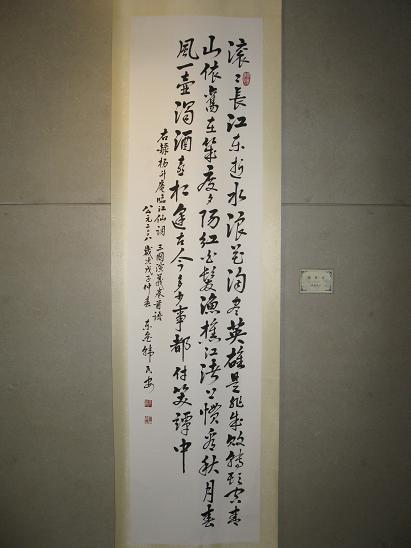 滚〻長江东逝水浪花淘尽英雄是非成败转头空青
山依舊在几度夕阳红白髮渔樵江渚上惯看秋月春
風一壶濁酒喜相逢古今多少事都付笑谭中
右録杨升庵臨江仙詞 三國演義卷首語
公元二〇〇八歲次戊子仲春